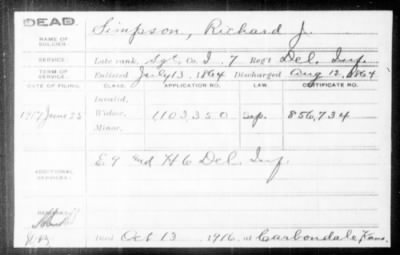 DEAD.
Simpson, Richard J.
NAME OF SOLDIER:
SERVICE: Late rank, Sgt. Co. I, 7 Reg't Del. Inf.
TERM OF SERVICE: Enlisted July 13, 1864 Discharged Aug 12, 1864
DATE OF FILING. CLASS. APPLICATION NO. LAW. CERTIFICATE NO.
Invalid,
June 23 Widow, 1103,350 856,734
Minor,
ADDITIONAL SERVICES: Del. Inf.
REMARKS:
Died Oct 13 1916, at Carbondale, Kans.